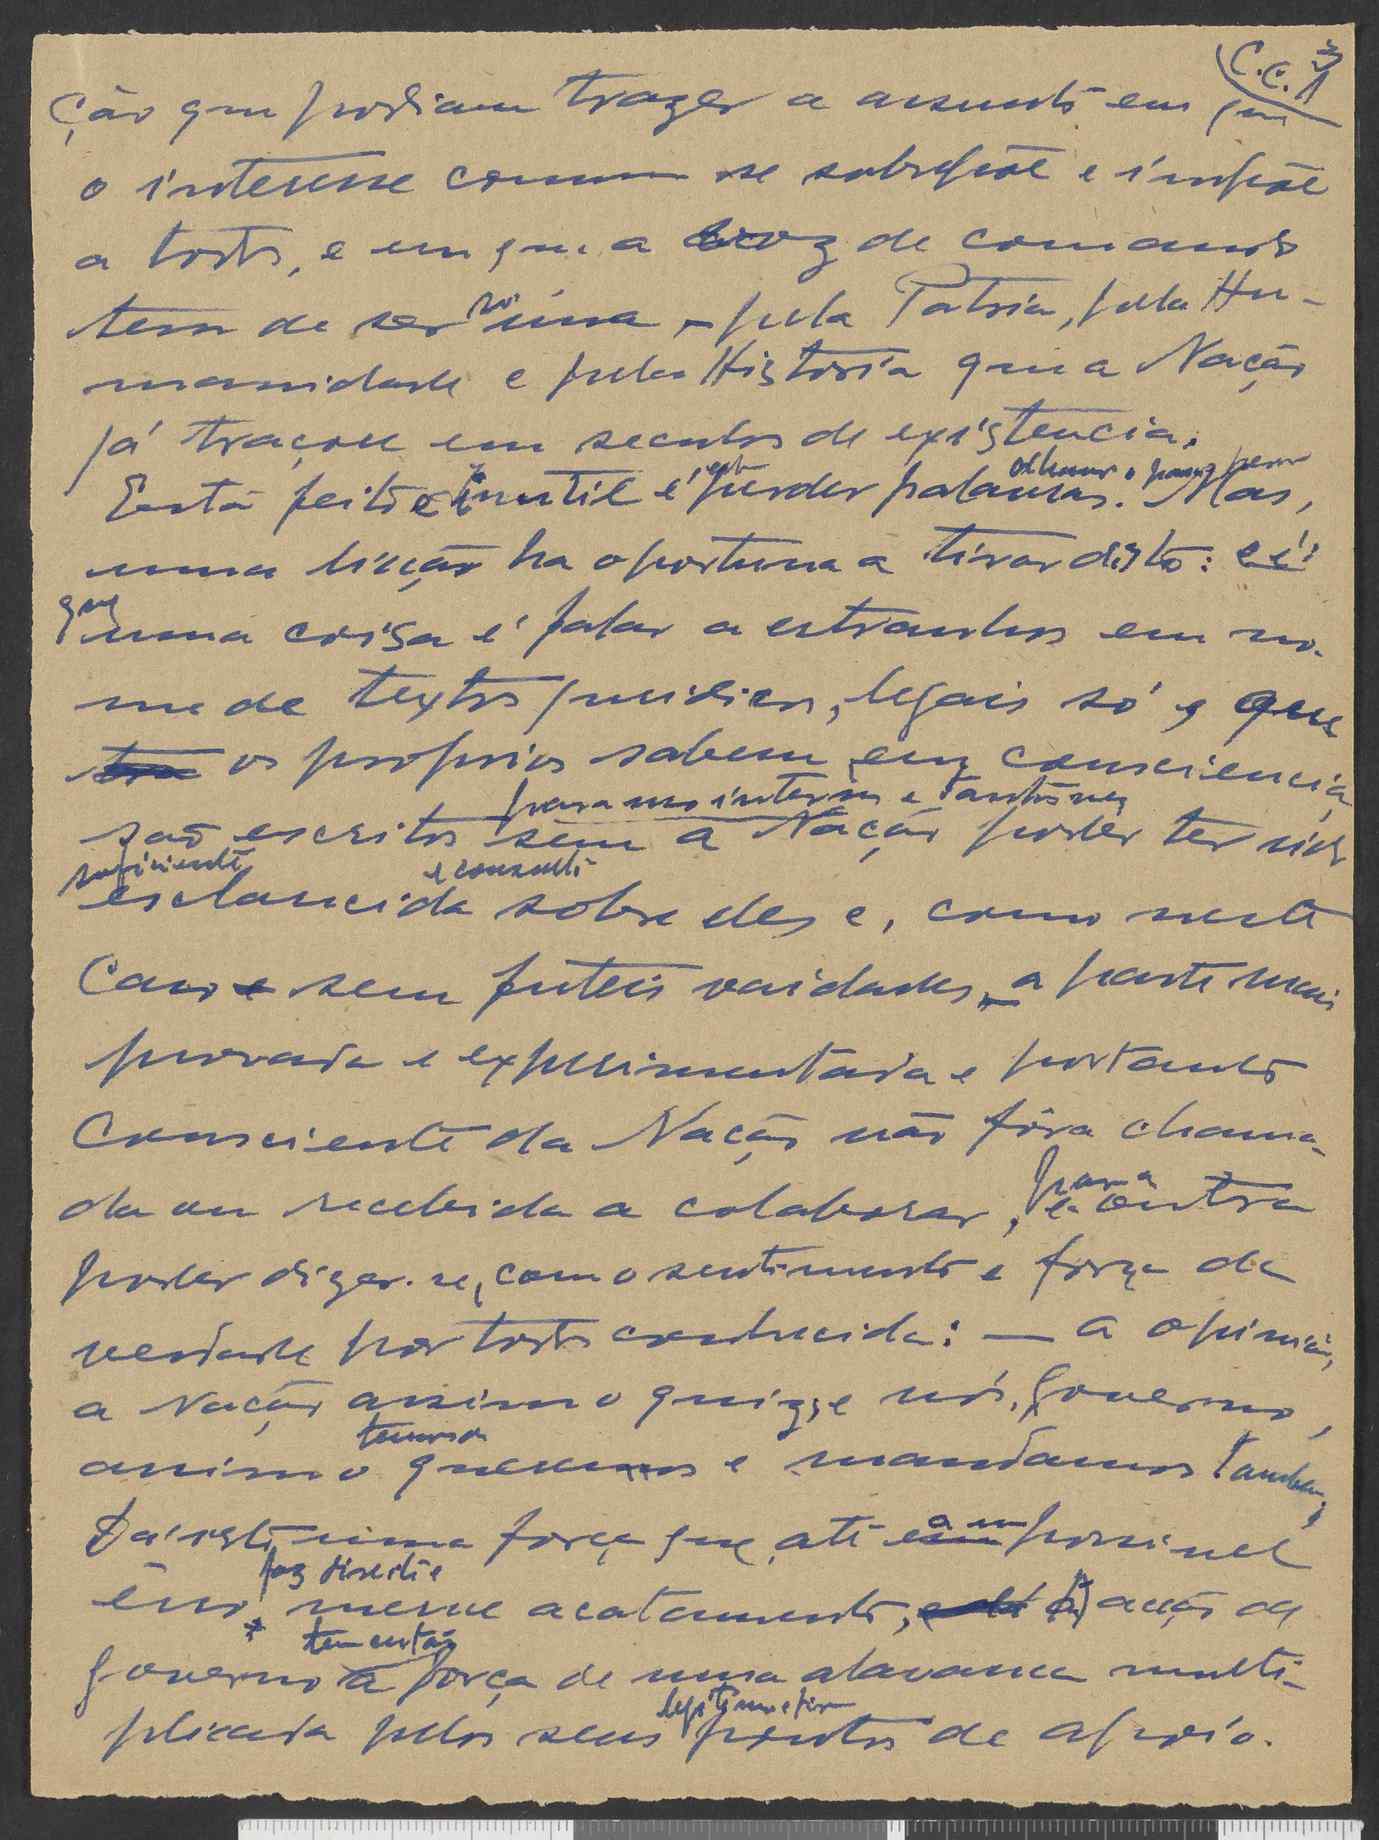 C.C. 3
ção que podiam trazer a assunto em que
o interesse comum se sobrepõe e impõe
a todos, e em que a voz de comando
tem de ser só úna, pela Patria, pela Hu-
manidade e pela Historia que a Nação
já traçou em seculos de existencia.
Está feito e inutil é perder palavras. Mas,
uma licção ha oportuna a tirar disto: e é:
que uma coisa é falar a estranhos em no-
me de textos juridicos, legais só, que
os proprios sabem, em consciencia,
para uso interno e
são escritos sem a Nação poder ter sido
suficiente e consulti
esclarecida sobre eles e, como neste
caso sem futeis vaidades, a parte mais
provada e experimentada e portanto
consciente da Nação não fôra chama-
da ou recebida a colaborar, e outra
para
poder dizer-se, com o sentimento e força da
verdade por todos conhecida: — a opinião,
a Nação assim o quiz, e nós, Governo,
assim o queremos e mandamos tambem.
Dá isto uma força que, até em possivel
faz direito e
êrro, merece acatamento, acção de
governo a força de uma alavanca multi-
legitimos e firm
plicada pelos seus pontos de apoio.